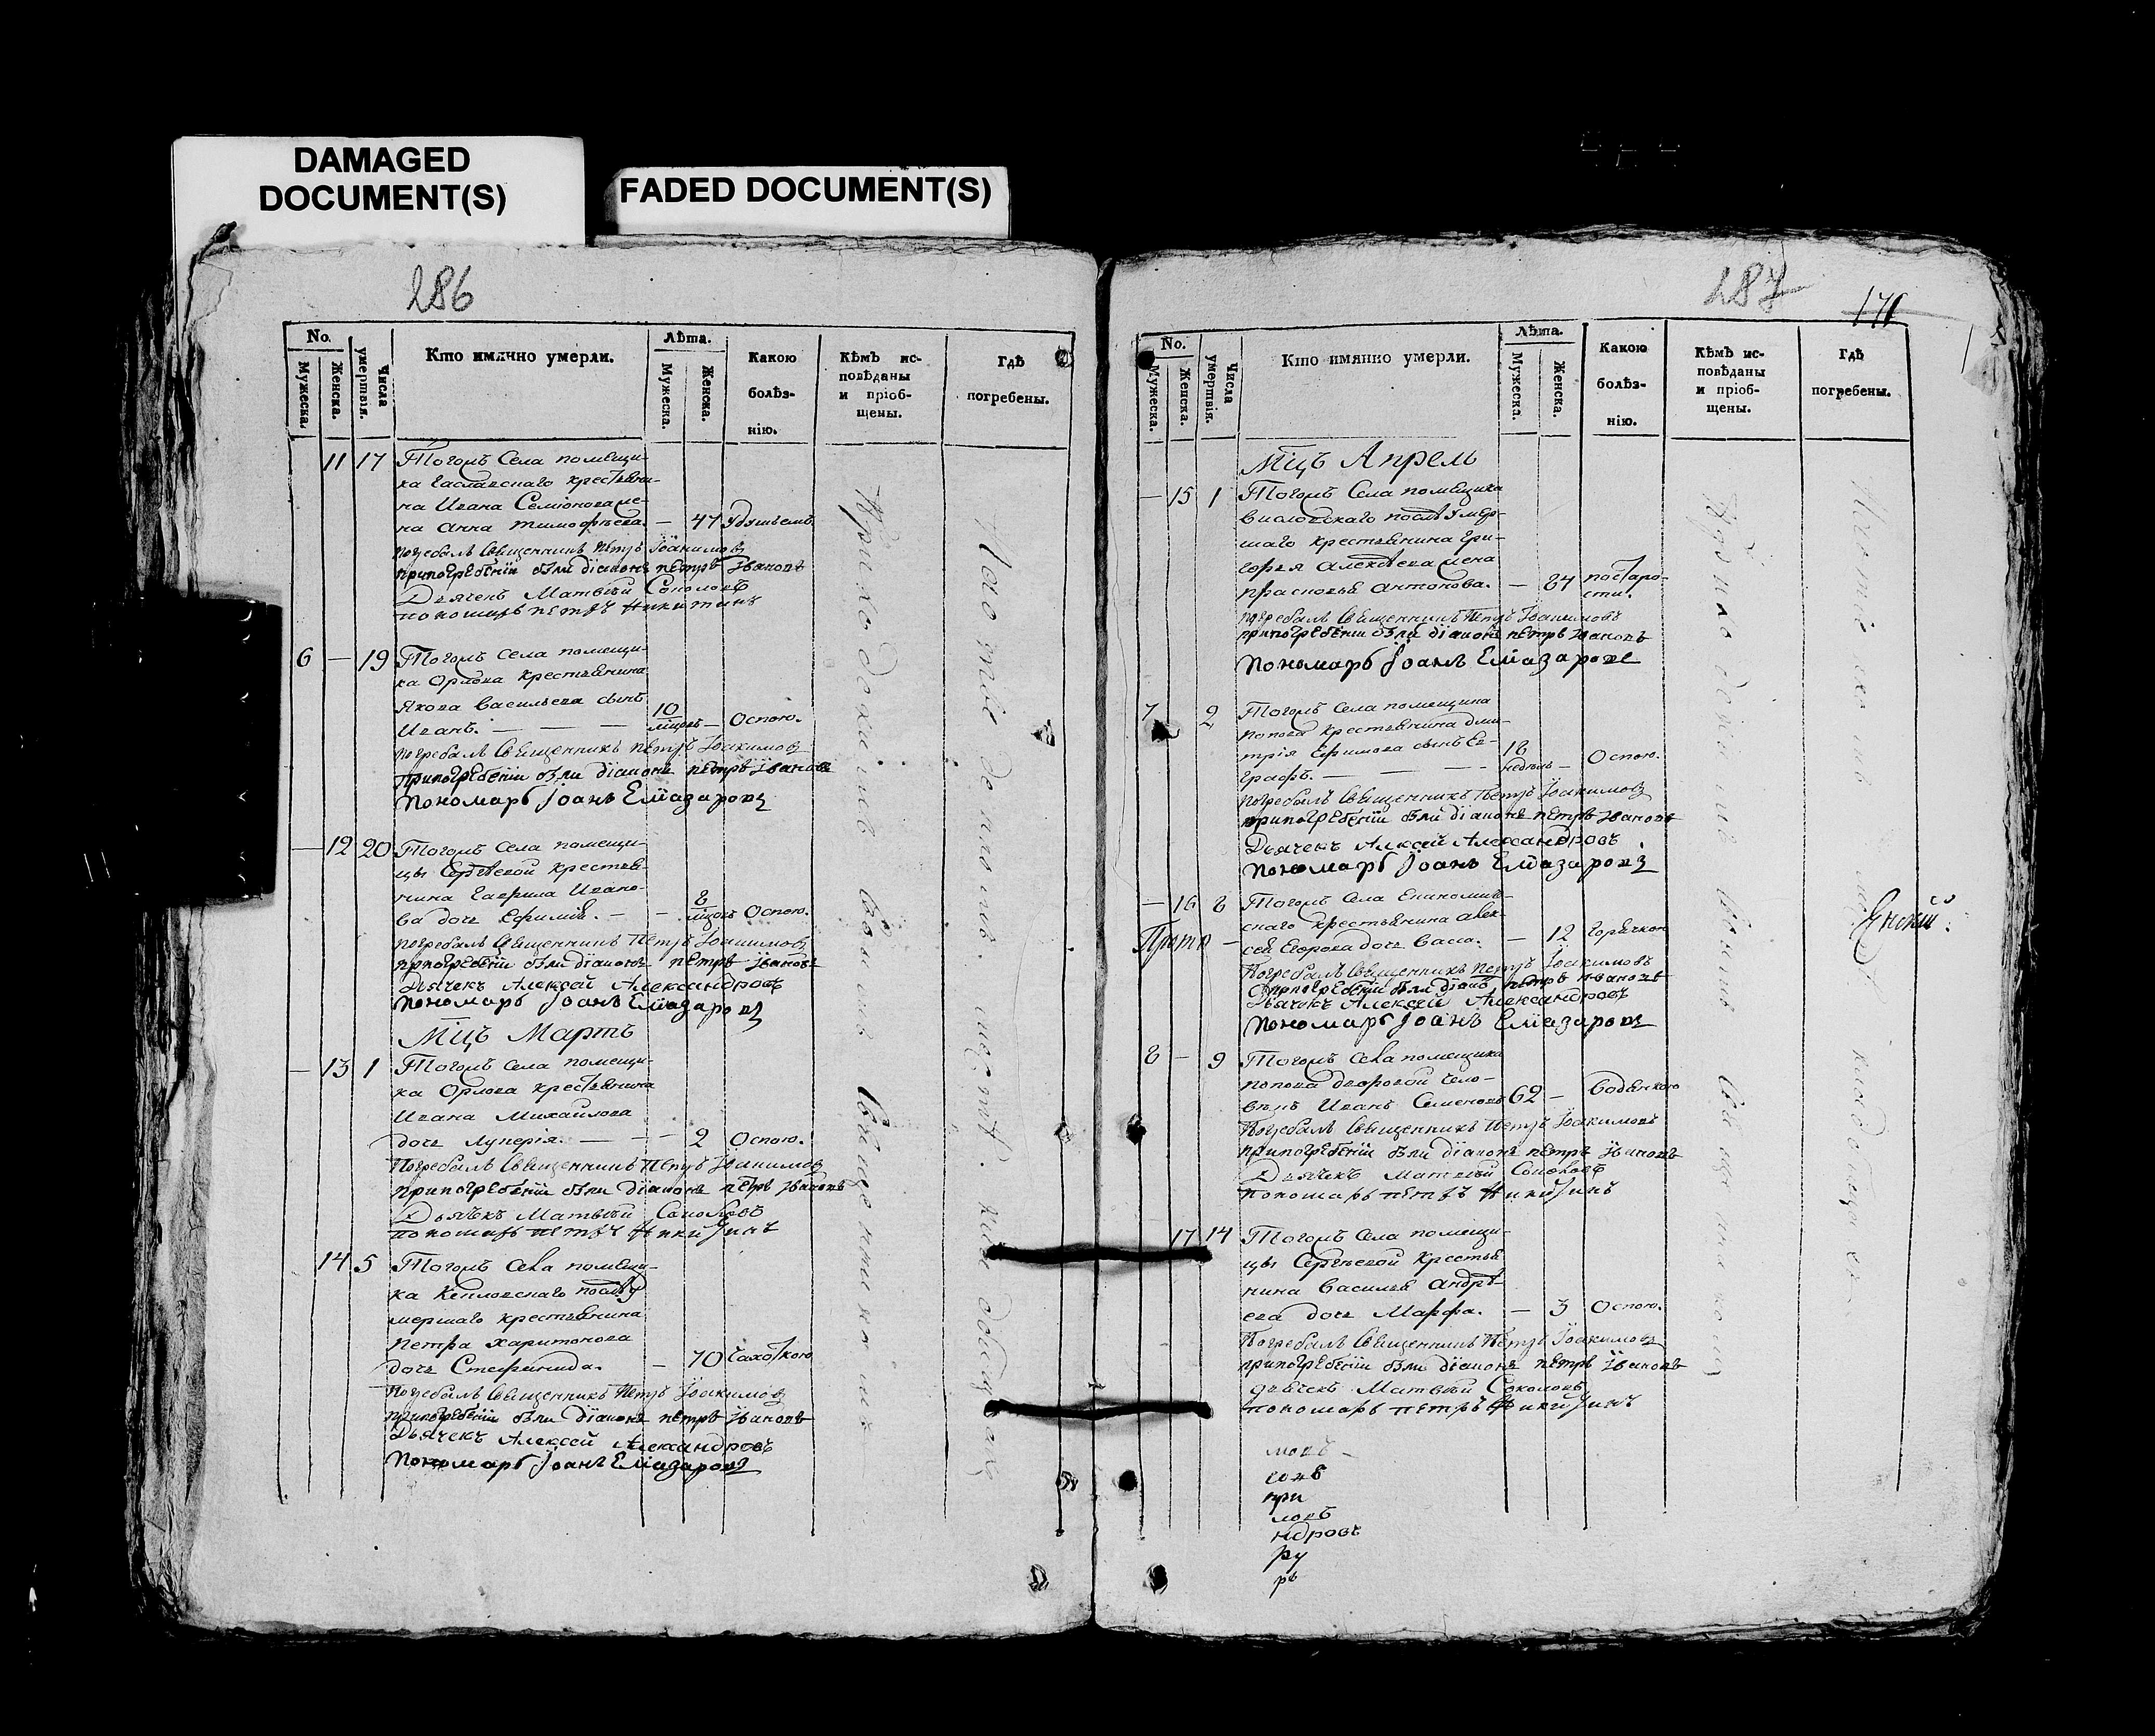 DAMAGED
DOCUMENT(S)
FADED DOCUMENT(S)
286
No.
Мужеска.
Женска.
Числа умертвія.
Кто имянно умерли.
Лѣта.
Мужеска.
Женска.
Какою
болѣз-
нію.
Кѣмъ ис-
повѣданы
и пріоб-
щены.
Гдѣ
погребены.
11 17 Тогожъ Села помещи-
ка крестьяни-
на Ивана Семіонова же-
на Анна Тимофѣева. — 47 Удушьемъ
погребалъ Священникъ Петръ Іоакимовъ
припогребеніи были діаконъ петръ Ивановъ
Дьячекъ Матвѣй Соколовъ
пономарь петръ Никитинъ
6 — 19 Тогожъ села помещи-
ка Орлова крестьянина
Якова Васильева сынъ
Иванъ. — — 10 мцовъ — Оспою.
погребалъ Священникъ петръ Іоакимовъ
припогребеніи были діаконъ петръ Ивановъ
Пономарь Іоанъ Елиазаровъ
— 12 20 Тогожъ Села помещи-
цы Сергѣевой крестья-
нина Гаврила Ивано-
ва дочь Ефимія. — — 8 мцовъ Оспою.
погребалъ Священникъ Петръ Іоакимовъ
припогребеніи были діаконъ петръ Ивановъ
Дьячекъ Алексѣй Александровъ
Пономарь Іоанъ Елиазаровъ
Мцъ Мартъ
— 13 1 Тогожъ Села помещи-
ка Орлова крестьянина
Ивана Михайлова
дочь Лукерія. — — 2 Оспою.
Погребалъ Священникъ Петръ Іоакимовъ
припогребеніи были діаконъ петръ Ивановъ
Дьячекъ Матвѣй Соколовъ
пономарь петръ Никитинъ
14 5 Тогожъ Села помещи-
ка послѣ у-
мершаго крестьянина
Петра Харитонова
дочь Стефанида. — 70 Чахоткою
Погребалъ Священникъ Петръ Іоакимовъ
припогребеніи были діаконъ петръ Ивановъ
Дьячекъ Алексѣй Александровъ
Пономарь Іоанъ Елиазаровъ
Приходскимъ Священникомъ
На отведенномъ кладбищѣ
287
171
No.
Мужеска.
Женска.
Числа умертвія.
Кто имянно умерли.
Лѣта.
Мужеска.
Женска.
Какою
болѣз-
нію.
Кѣмъ ис-
повѣданы
и пріоб-
щены.
Гдѣ
погребены.
Мцъ Апрель
— 15 1 Тогожъ Села помещика
Висловскаго послѣ умер-
шаго крестьянина Гри-
горья Алексѣева жена
Прасковья Антонова. — 84 постаро-
сти.
погребалъ Священникъ Петръ Іоакимовъ
припогребеніи были діаконъ петръ Ивановъ
Пономарь Іоанъ Елиазаровъ
7 2 Тогожъ Села помещика
Попова крестьянина Дми-
трія Ефимова сынъ Ев-
графъ. — — — 18 недель — Оспою.
погребалъ Священникъ Петръ Іоакимовъ
припогребеніи были діаконъ петръ Ивановъ
Дьячекъ Алексѣй Александровъ
Пономарь Іоанъ Елиазаровъ
— 16 8 Тогожъ Села Економиче-
скаго крестьянина Алек-
сѣя Егорова дочь Васса. — 12 Горячкою
Погребалъ Священникъ Петръ Іоакимовъ
припогребеніи были діаконъ петръ Ивановъ
Дьячекъ Алексѣй Александровъ
Пономарь Іоанъ Елиазаровъ
8 — 9 Тогожъ Села помещика
Попова дворовой чело-
вѣкъ Иванъ Семеновъ 62 — Водянкою
Погребалъ Священникъ Петръ Іоакимовъ
припогребеніи были діаконъ петръ Ивановъ
Дьячекъ Матвѣй Соколовъ
пономарь петръ Никитинъ
17 14 Тогожъ Села помещи-
цы Сергѣевой крестья-
нина Василья Андрѣ-
ева дочь Марфа. — 3 Оспою.
Погребалъ Священникъ Петръ Іоакимовъ
припогребеніи были діаконъ петръ Ивановъ
дьячекъ Матвѣй Соколовъ
пономарь петръ Никитинъ
мовъ
при
ловъ
ндровъ
ру
рь